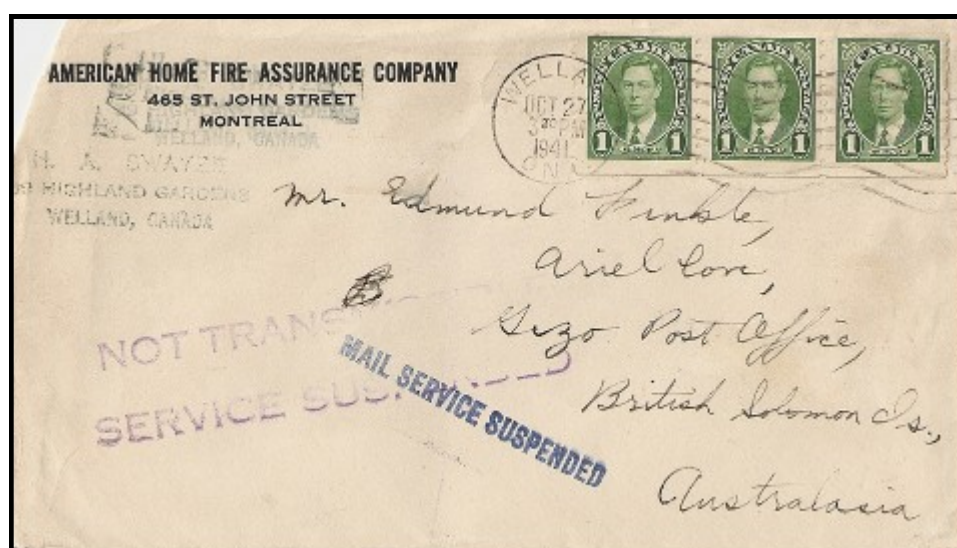 AMERICAN HOME FIRE ASSURANCE COMPANY
465 ST. JOHN STREET
MONTREAL
WELLAND, CANADA
H. A. SWAYZE
HIGHLAND GARDENS
WELLAND, CANADA
OCT 27
PM
1941
ONT
CANADA
1 1
CANADA
1 1
CANADA
1 1
Mr. Edmund
Ariel Cove,
Gizo Post Office,
British Solomon Is.,
Australasia
NOT
SERVICE SUSPENDED
MAIL SERVICE SUSPENDED